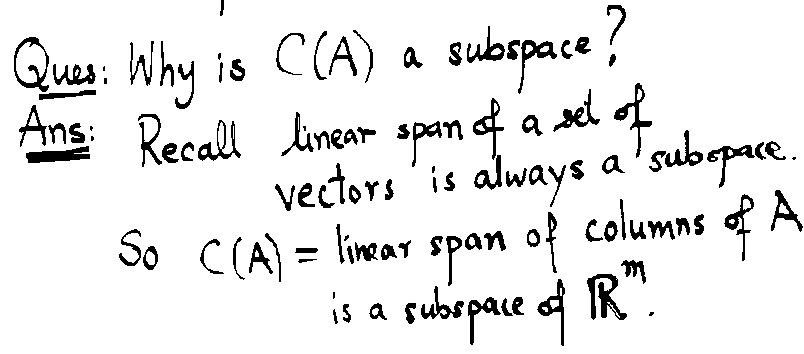 Ques: Why is C(A) a subspace?
Ans: Recall linear span of a set of
vectors is always a subspace.
So C(A) = linear span of columns of A
is a subspace of ℝᵐ.